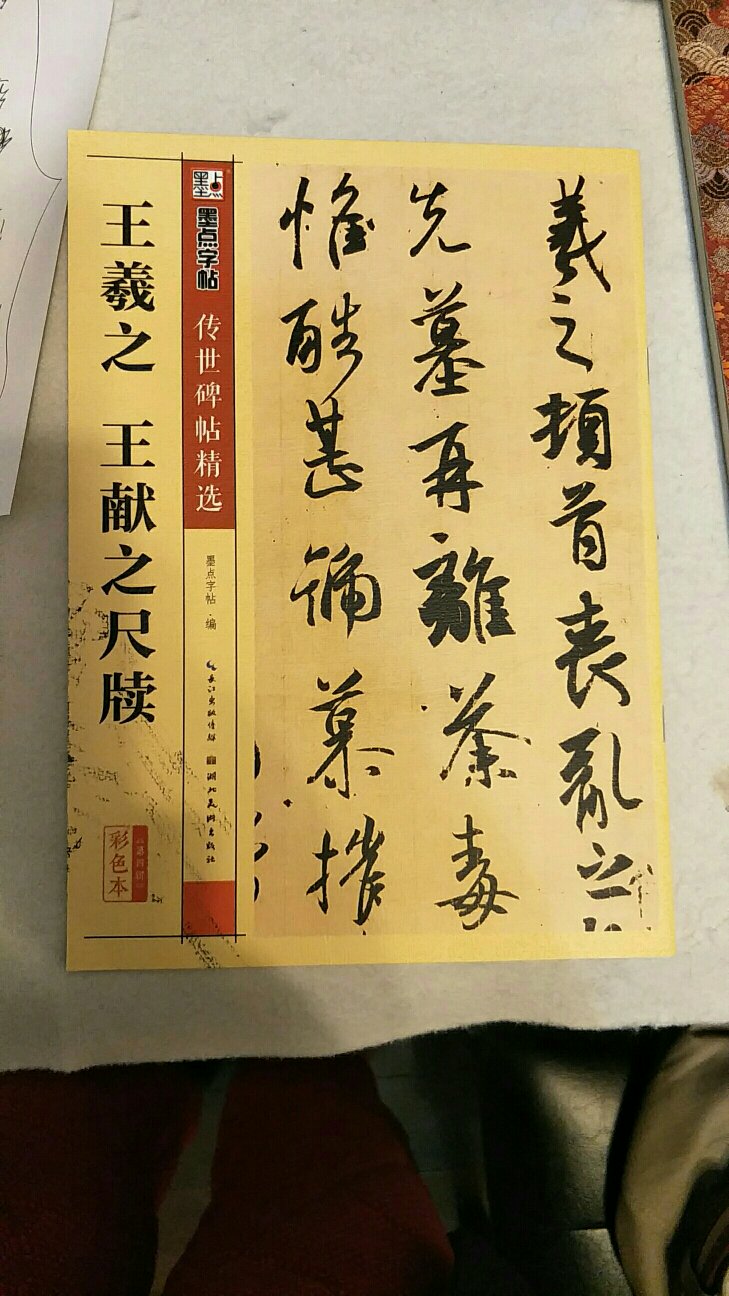 王羲之 王献之尺牍
彩色本
第四辑
墨点
墨点字帖
传世碑帖精选
墨点字帖·编
长江出版传媒
湖北美术出版社
羲之頓首喪亂之
先墓再離荼毒
惟酷甚號慕摧